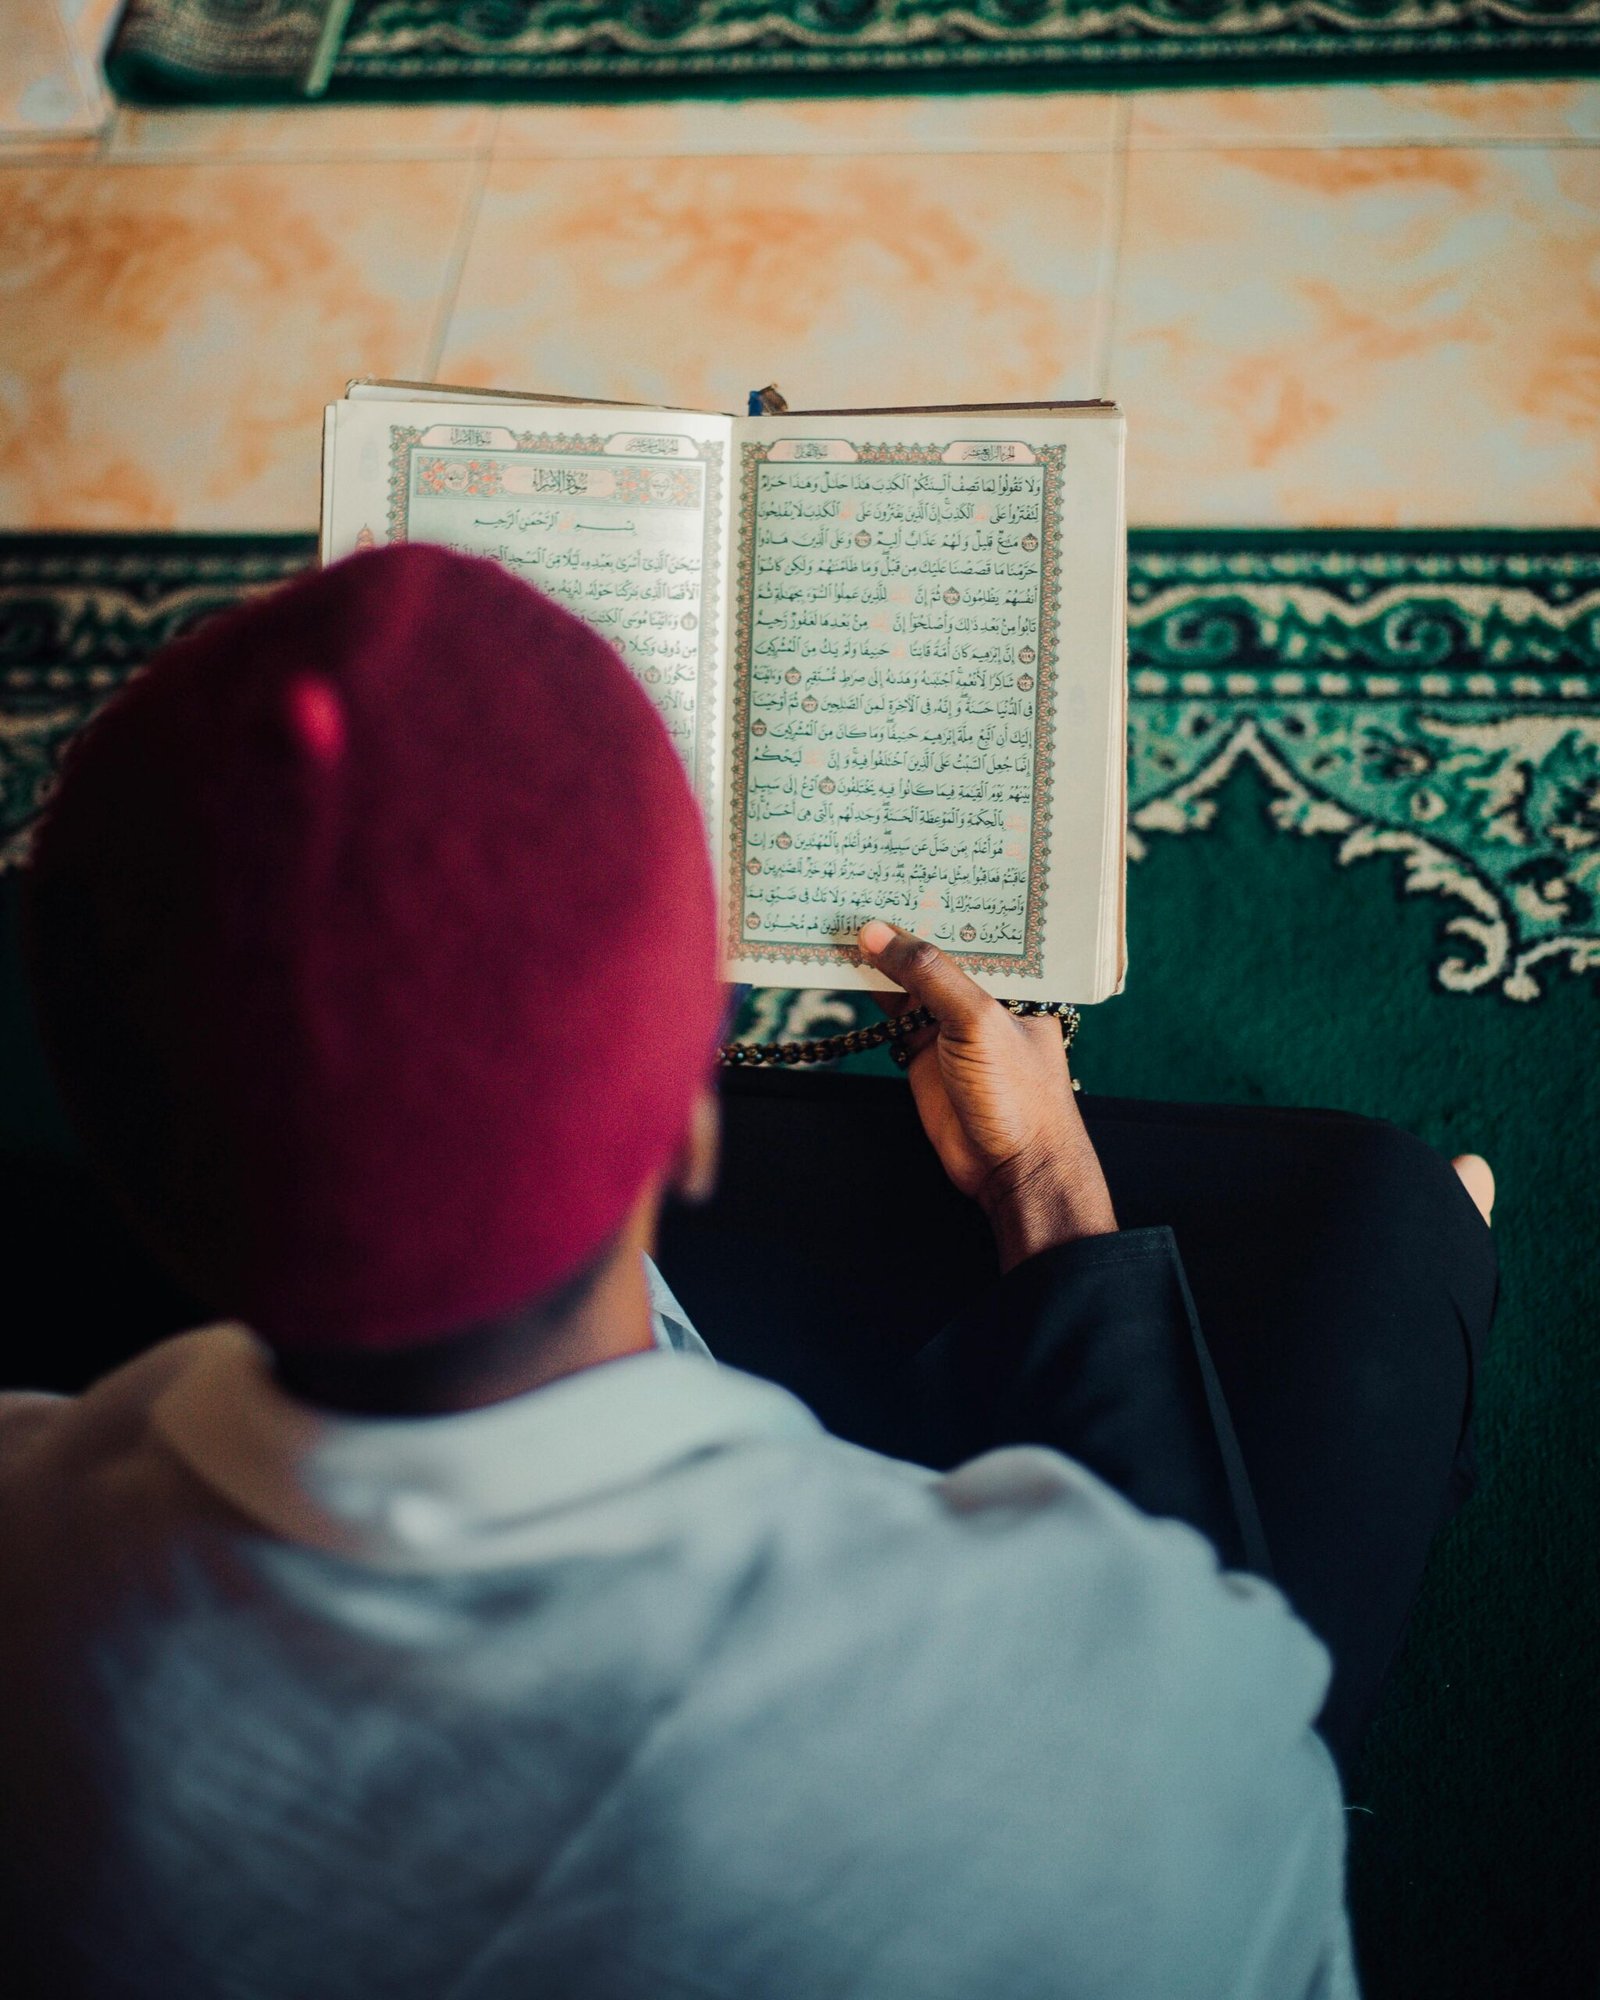 الجزء الرابع عشر سورة النحل
وَلَا تَقُولُوا۟ لِمَا تَصِفُ أَلْسِنَتُكُمُ ٱلْكَذِبَ هَٰذَا حَلَٰلٌ وَهَٰذَا حَرَامٌ
لِّتَفْتَرُوا۟ عَلَى ٱللَّهِ ٱلْكَذِبَ إِنَّ ٱلَّذِينَ يَفْتَرُونَ عَلَى ٱللَّهِ ٱلْكَذِبَ لَا يُفْلِحُونَ
١١٦ مَتَٰعٌ قَلِيلٌ وَلَهُمْ عَذَابٌ أَلِيمٌ ١١٧ وَعَلَى ٱلَّذِينَ هَادُوا۟
حَرَّمْنَا مَا قَصَصْنَا عَلَيْكَ مِن قَبْلُ وَمَا ظَلَمْنَٰهُمْ وَلَٰكِن كَانُوٓا۟
أَنفُسَهُمْ يَظْلِمُونَ ١١٨ ثُمَّ إِنَّ رَبَّكَ لِلَّذِينَ عَمِلُوا۟ ٱلسُّوٓءَ بِجَهَٰلَةٍ ثُمَّ
تَابُوا۟ مِنۢ بَعْدِ ذَٰلِكَ وَأَصْلَحُوٓا۟ إِنَّ رَبَّكَ مِنۢ بَعْدِهَا لَغَفُورٌ رَّحِيمٌ
١١٩ إِنَّ إِبْرَٰهِيمَ كَانَ أُمَّةً قَانِتًا لِّلَّهِ حَنِيفًا وَلَمْ يَكُ مِنَ ٱلْمُشْرِكِينَ
١٢٠ شَاكِرًا لِّأَنْعُمِهِ ٱجْتَبَىٰهُ وَهَدَىٰهُ إِلَىٰ صِرَٰطٍ مُّسْتَقِيمٍ ١٢١ وَءَاتَيْنَٰهُ
فِى ٱلدُّنْيَا حَسَنَةً وَإِنَّهُۥ فِى ٱلْءَاخِرَةِ لَمِنَ ٱلصَّٰلِحِينَ ١٢٢ ثُمَّ أَوْحَيْنَآ
إِلَيْكَ أَنِ ٱتَّبِعْ مِلَّةَ إِبْرَٰهِيمَ حَنِيفًا وَمَا كَانَ مِنَ ٱلْمُشْرِكِينَ ١٢٣
إِنَّمَا جُعِلَ ٱلسَّبْتُ عَلَى ٱلَّذِينَ ٱخْتَلَفُوا۟ فِيهِ وَإِنَّ رَبَّكَ لَيَحْكُمُ
بَيْنَهُمْ يَوْمَ ٱلْقِيَٰمَةِ فِيمَا كَانُوا۟ فِيهِ يَخْتَلِفُونَ ١٢٤ ٱدْعُ إِلَىٰ سَبِيلِ
رَبِّكَ بِٱلْحِكْمَةِ وَٱلْمَوْعِظَةِ ٱلْحَسَنَةِ وَجَٰدِلْهُم بِٱلَّتِى هِىَ أَحْسَنُ إِنَّ
رَبَّكَ هُوَ أَعْلَمُ بِمَن ضَلَّ عَن سَبِيلِهِۦ وَهُوَ أَعْلَمُ بِٱلْمُهْتَدِينَ ١٢٥ وَإِنْ
عَاقَبْتُمْ فَعَاقِبُوا۟ بِمِثْلِ مَا عُوقِبْتُم بِهِۦ وَلَئِن صَبَرْتُمْ لَهُوَ خَيْرٌ لِّلصَّٰبِرِينَ ١٢٦
وَٱصْبِرْ وَمَا صَبْرُكَ إِلَّا بِٱللَّهِ وَلَا تَحْزَنْ عَلَيْهِمْ وَلَا تَكُ فِى ضَيْقٍ مِّمَّا
يَمْكُرُونَ ١٢٧ إِنَّ ٱللَّهَ مَعَ ٱلَّذِينَ ٱتَّقَوا۟ وَّٱلَّذِينَ هُم مُّحْسِنُونَ ١٢٨
الجزء الخامس عشر سورة الإسراء
سورة الإسراء
بِسْمِ ٱللَّهِ ٱلرَّحْمَٰنِ ٱلرَّحِيمِ
سُبْحَٰنَ ٱلَّذِىٓ أَسْرَىٰ بِعَبْدِهِۦ لَيْلًا مِّنَ ٱلْمَسْجِدِ ٱلْحَرَامِ
ٱلْأَقْصَا ٱلَّذِى بَٰرَكْنَا حَوْلَهُۥ لِنُرِيَهُۥ مِنْ
١ وَءَاتَيْنَا مُوسَى ٱلْكِتَٰبَ
مِن دُونِى وَكِيلًا ٢
شَكُورًا ٣
فِى ٱلْأَرْضِ